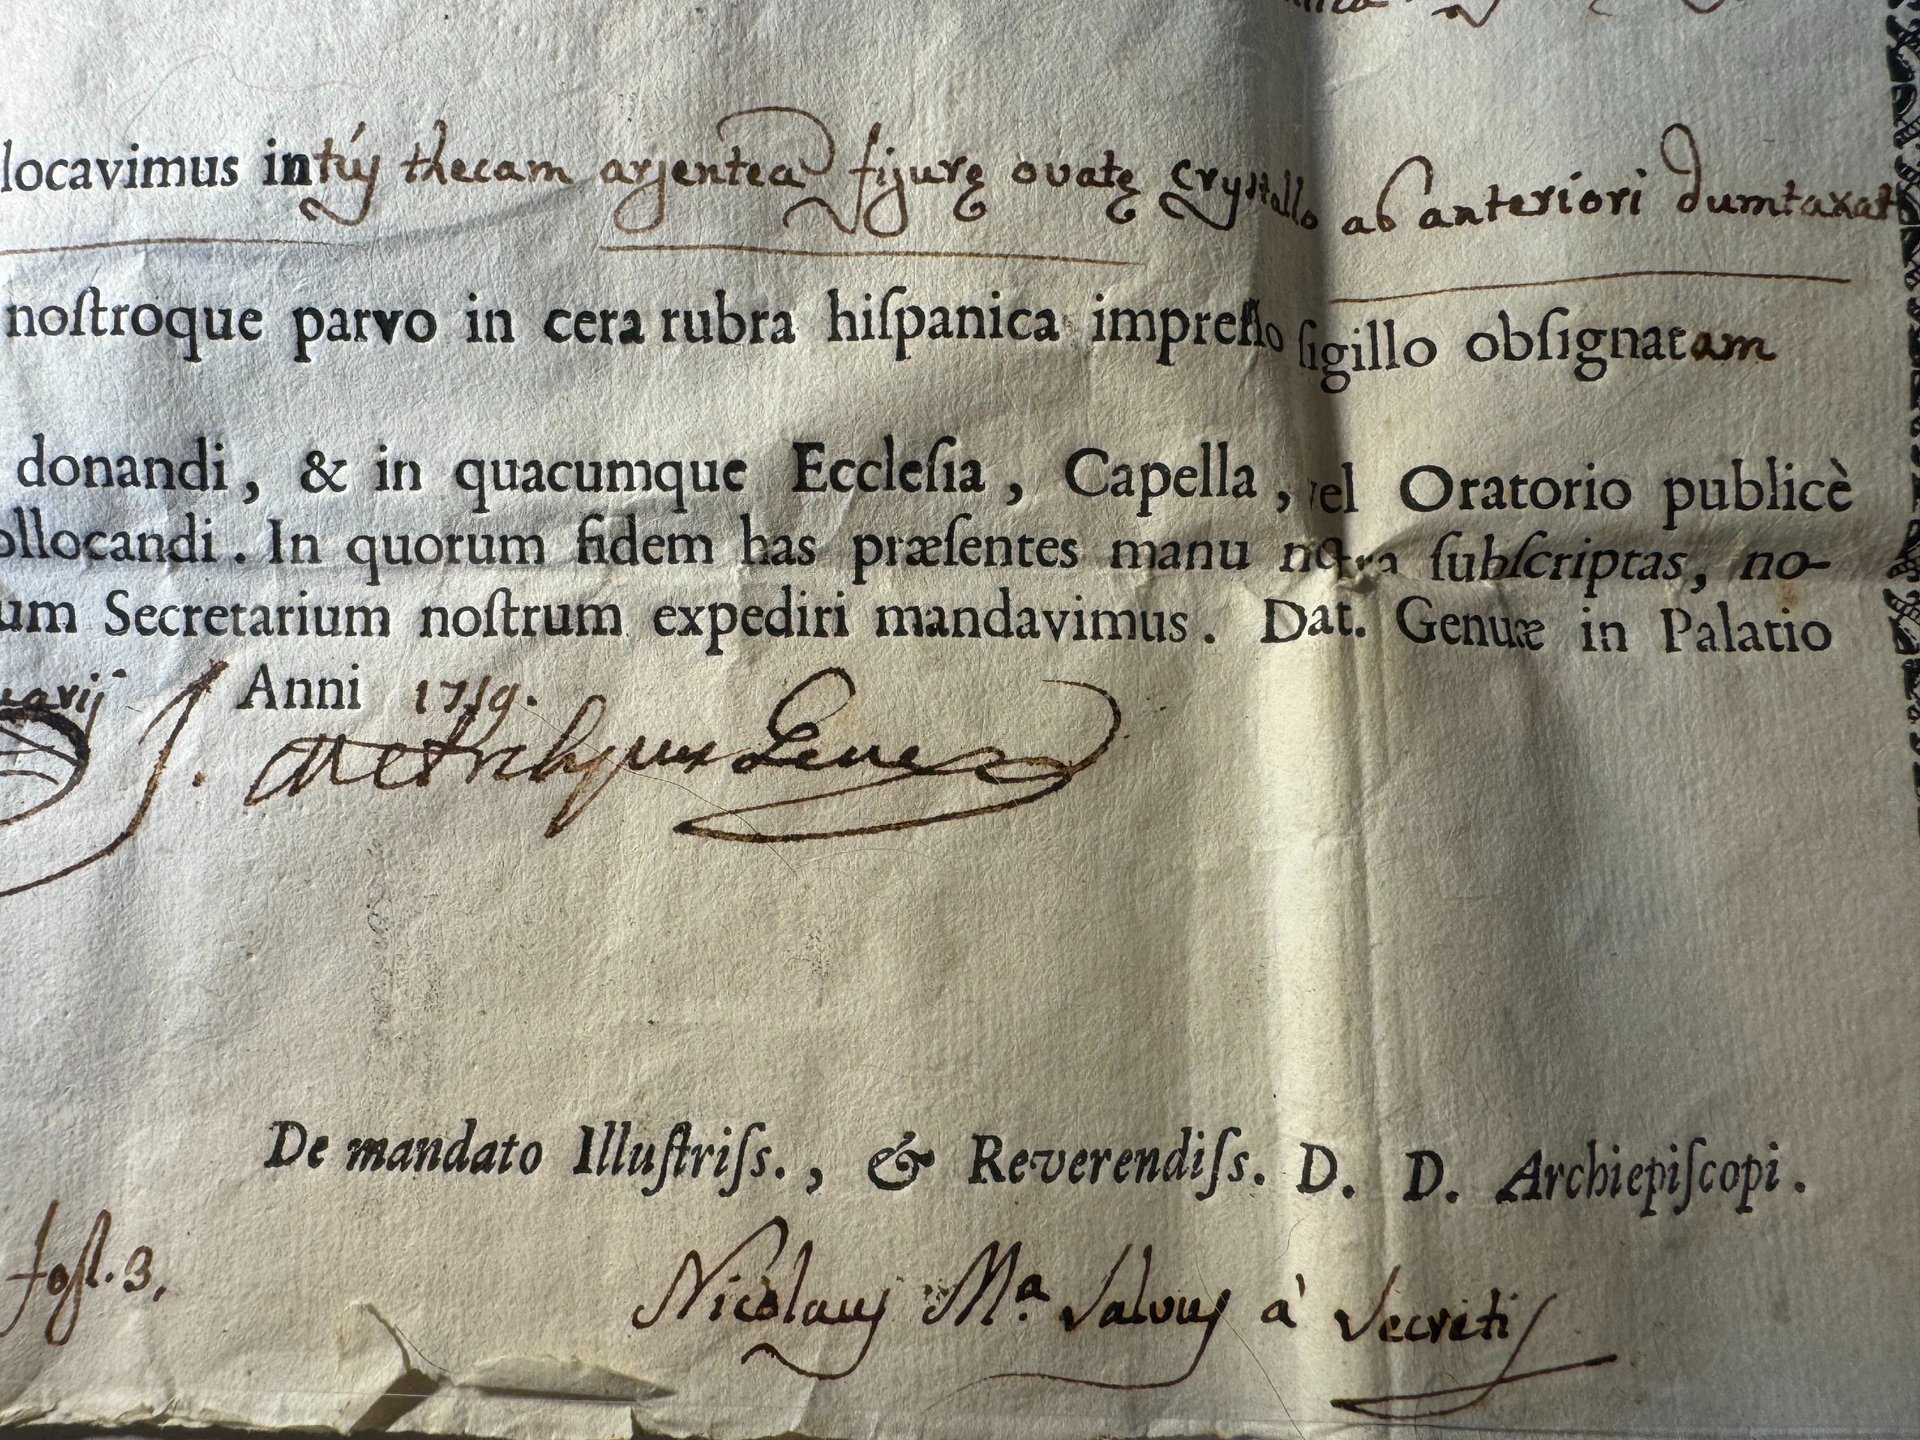 locavimus intùs thecam argenteā figurę ovatę crystallo ab anteriori dumtaxat
noſtroque parvo in cera rubra hiſpanica impreſſo ſigillo obſignatam
donandi, & in quacumque Eccleſia, Capella, vel Oratorio publicè
ollocandi. In quorum fidem has præſentes manu noſtra ſubſcriptas, no-
um Secretarium noſtrum expediri mandavimus. Dat. Genuæ in Palatio
Anni 1719.
Archiepus Genuæ
De mandato Illuſtriſs., & Reverendiſs. D. D. Archiepiſcopi.
foſl. 3,
Nicolaus Mª Salvus à Secretis